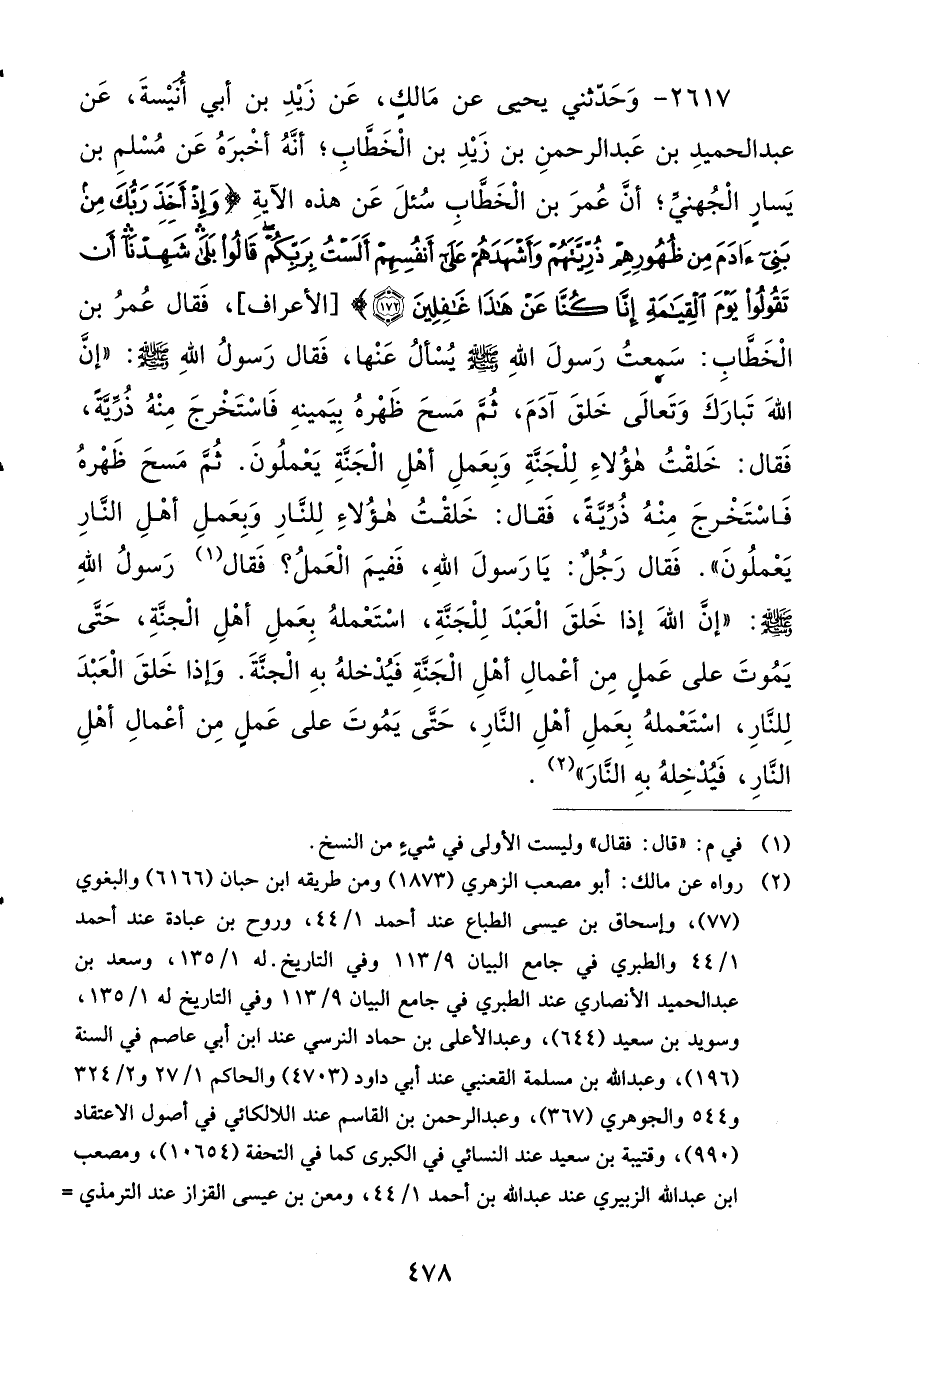 ٢٦١٧- وَحَدّثني يحيى عن مَالكٍ، عَن زَيْدِ بن أبي أُنَيْسةَ، عَن
عبدالحميدِ بن عَبدالرحمنِ بن زَيْدِ بن الْخَطَّابِ؛ أنَّهُ أخْبرَهُ عَن مُسْلمِ بن
يَسارٍ الْجُهنيِّ؛ أنَّ عُمرَ بن الْخَطَّابِ سُئلَ عَن هذه الآيةِ ﴿ وَإِذْ أَخَذَ رَبُّكَ مِنۢ
بَنِىٓ ءَادَمَ مِن ظُهُورِهِمْ ذُرِّيَّتَهُمْ وَأَشْهَدَهُمْ عَلَىٰٓ أَنفُسِهِمْ أَلَسْتُ بِرَبِّكُمْ ۖ قَالُوا۟ بَلَىٰ ۛ شَهِدْنَآ ۛ أَن
تَقُولُوا۟ يَوْمَ ٱلْقِيَـٰمَةِ إِنَّا كُنَّا عَنْ هَـٰذَا غَـٰفِلِينَ ﴿١٧٢﴾ ﴾ [الأعراف]، فَقال عُمرُ بن
الْخَطَّابِ: سَمِعتُ رَسولَ اللهِ ﷺ يُسْألُ عَنْها، فَقال رَسولُ اللهِ ﷺ: «إنَّ
اللهَ تَبارَكَ وَتَعالَى خَلقَ آدَمَ، ثُمَّ مَسحَ ظَهْرهُ بِيَمينهِ فَاسْتَخْرجَ مِنْهُ ذُرِّيَّةً،
فَقال: خَلقْتُ هٰؤُلاءِ لِلْجَنَّةِ وَبِعَملِ أهْلِ الْجَنَّةِ يَعْملُونَ. ثُمَّ مَسحَ ظَهْرهُ
فَاسْتَخْرجَ مِنْهُ ذُرِّيَّةً، فَقال: خَلقْتُ هٰؤُلاءِ لِلنَّارِ وَبِعَملِ أهْلِ النَّارِ
يَعْملُونَ». فَقال رَجُلٌ: يَا رَسولَ اللهِ، فَفيمَ الْعَملُ؟ فَقال(١) رَسولُ اللهِ
ﷺ: «إنَّ اللهَ إذا خَلقَ الْعَبْدَ لِلْجَنَّةِ، اسْتَعْملهُ بِعَملِ أهْلِ الْجنَّةِ، حَتَّى
يَمُوتَ على عَملٍ مِن أعْمالِ أهْلِ الْجَنَّةِ فَيُدْخلهُ بهِ الْجنَّةَ. وَإذا خَلقَ الْعَبْدَ
لِلنَّارِ، اسْتَعْملهُ بِعَملِ أهْلِ النَّارِ، حَتَّى يَمُوتَ على عَملٍ مِن أعْمالِ أهْلِ
النَّارِ، فَيُدْخِلهُ بهِ النَّارَ»(٢).
(١) في م: «قال: فقال» وليست الأولى في شيءٍ من النسخ.
(٢) رواه عن مالك: أبو مصعب الزهري (١٨٧٣) ومن طريقه ابن حبان (٦١٦٦) والبغوي
(٧٧)، وإسحاق بن عيسى الطباع عند أحمد ١/ ٤٤، وروح بن عبادة عند أحمد
١/ ٤٤ والطبري في جامع البيان ٩/ ١١٣ وفي التاريخ له ١/ ١٣٥، وسعد بن
عبدالحميد الأنصاري عند الطبري في جامع البيان ٩/ ١١٣ وفي التاريخ له ١/ ١٣٥،
وسويد بن سعيد (٦٤٤)، وعبدالأعلى بن حماد النرسي عند ابن أبي عاصم في السنة
(١٩٦)، وعبدالله بن مسلمة القعنبي عند أبي داود (٤٧٠٣) والحاكم ١/ ٢٧ و٢/ ٣٢٤
و٥٤٤ والجوهري (٣٦٧)، وعبدالرحمن بن القاسم عند اللالكائي في أصول الاعتقاد
(٩٩٠)، وقتيبة بن سعيد عند النسائي في الكبرى كما في التحفة (١٠٦٥٤)، ومصعب
ابن عبدالله الزبيري عند عبدالله بن أحمد ١/ ٤٤، ومعن بن عيسى القزاز عند الترمذي =
٤٧٨